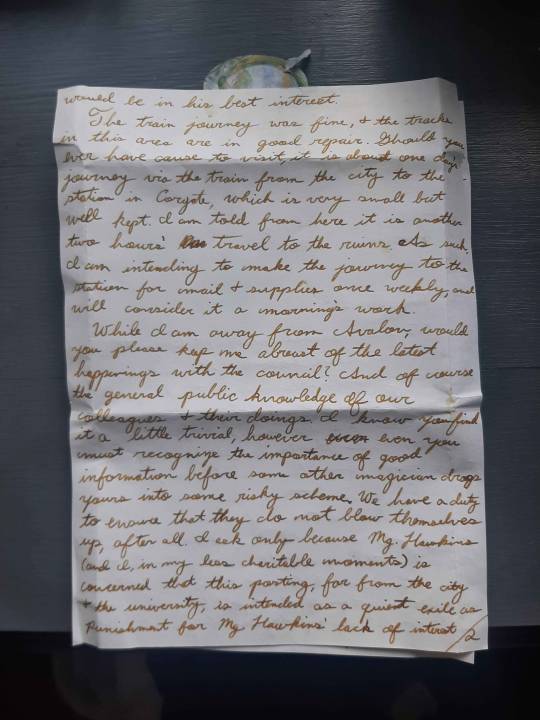 would be in his best interest.
The train journey was fine, & the tracks
in this area are in good repair. Should you
ever have cause to visit, it is about one day's
journey via the train from the city to the
station in Coryote, which is very small but
well kept. I am told from here it is another
two hours' travel to the ruins. As such,
I am intending to make the journey to the
station for mail & supplies once weekly, and
will consider it a morning's work.
While I am away from Avalon, would
you please keep me abreast of the latest
happenings with the council? And of course
the general public knowledge of our
colleagues & their doings. I know you find
it a little trivial, however even you
must recognize the importance of good
information before some other magician drags
yours into some risky scheme. We have a duty
to ensure that they do not blow themselves
up, after all. I ask only because Mg. Hawkins
(and I, in my less charitable moments) is
concerned that this posting, far from the city
& the university, is intended as a quiet exile as
punishment for Mg Hawkins' lack of interest /2